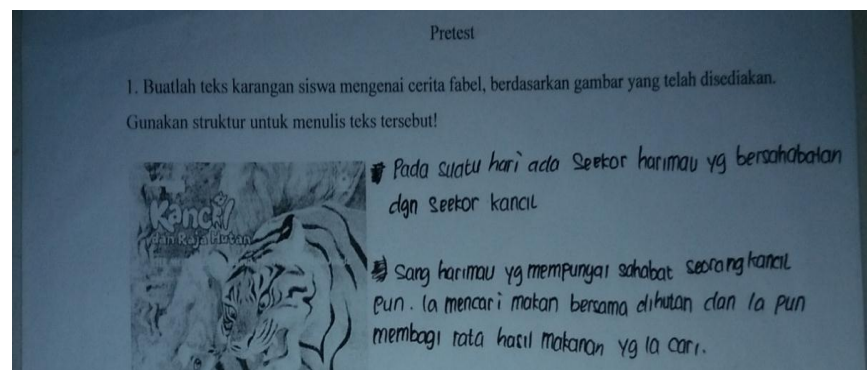 Pretest
1. Buatlah teks karangan siswa mengenai cerita fabel, berdasarkan gambar yang telah disediakan.
Gunakan struktur untuk menulis teks tersebut!
Kancil
dan Raja Hutan
Pada suatu hari ada Seekor harimau yg bersahabatan
dgn Seekor kancil
Sang harimau yg mempunyai sahabat seorang kancil
pun. Ia mencari makan bersama dihutan dan Ia pun
membagi rata hasil makanan yg Ia cari.